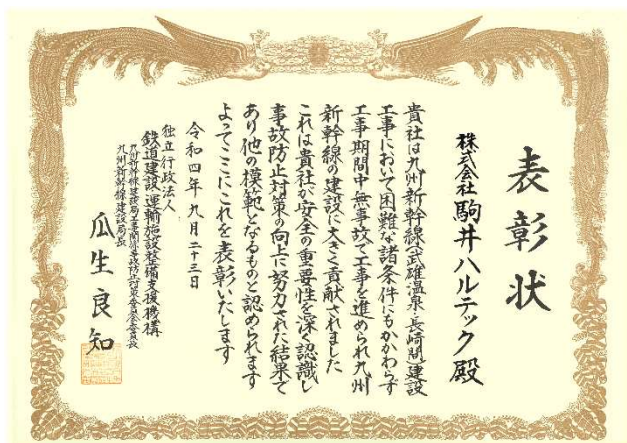 表彰状
株式会社駒井ハルテック殿
貴社は九州新幹線(武雄温泉・長崎間)建設
工事において困難な諸条件にもかかわらず
工事期間中無事故で工事を進められ九州
新幹線の建設に大きく貢献されました
これは貴社が安全の重要性を深く認識し
事故防止対策の向上に努力された結果で
あり他の模範となるものと認められます
よってここにこれを表彰いたします
令和四年九月二十三日
独立行政法人
鉄道建設・運輸施設整備支援機構
九州新幹線建設局工事関係事故防止対策委員会委員長
九州新幹線建設局長
瓜生良知